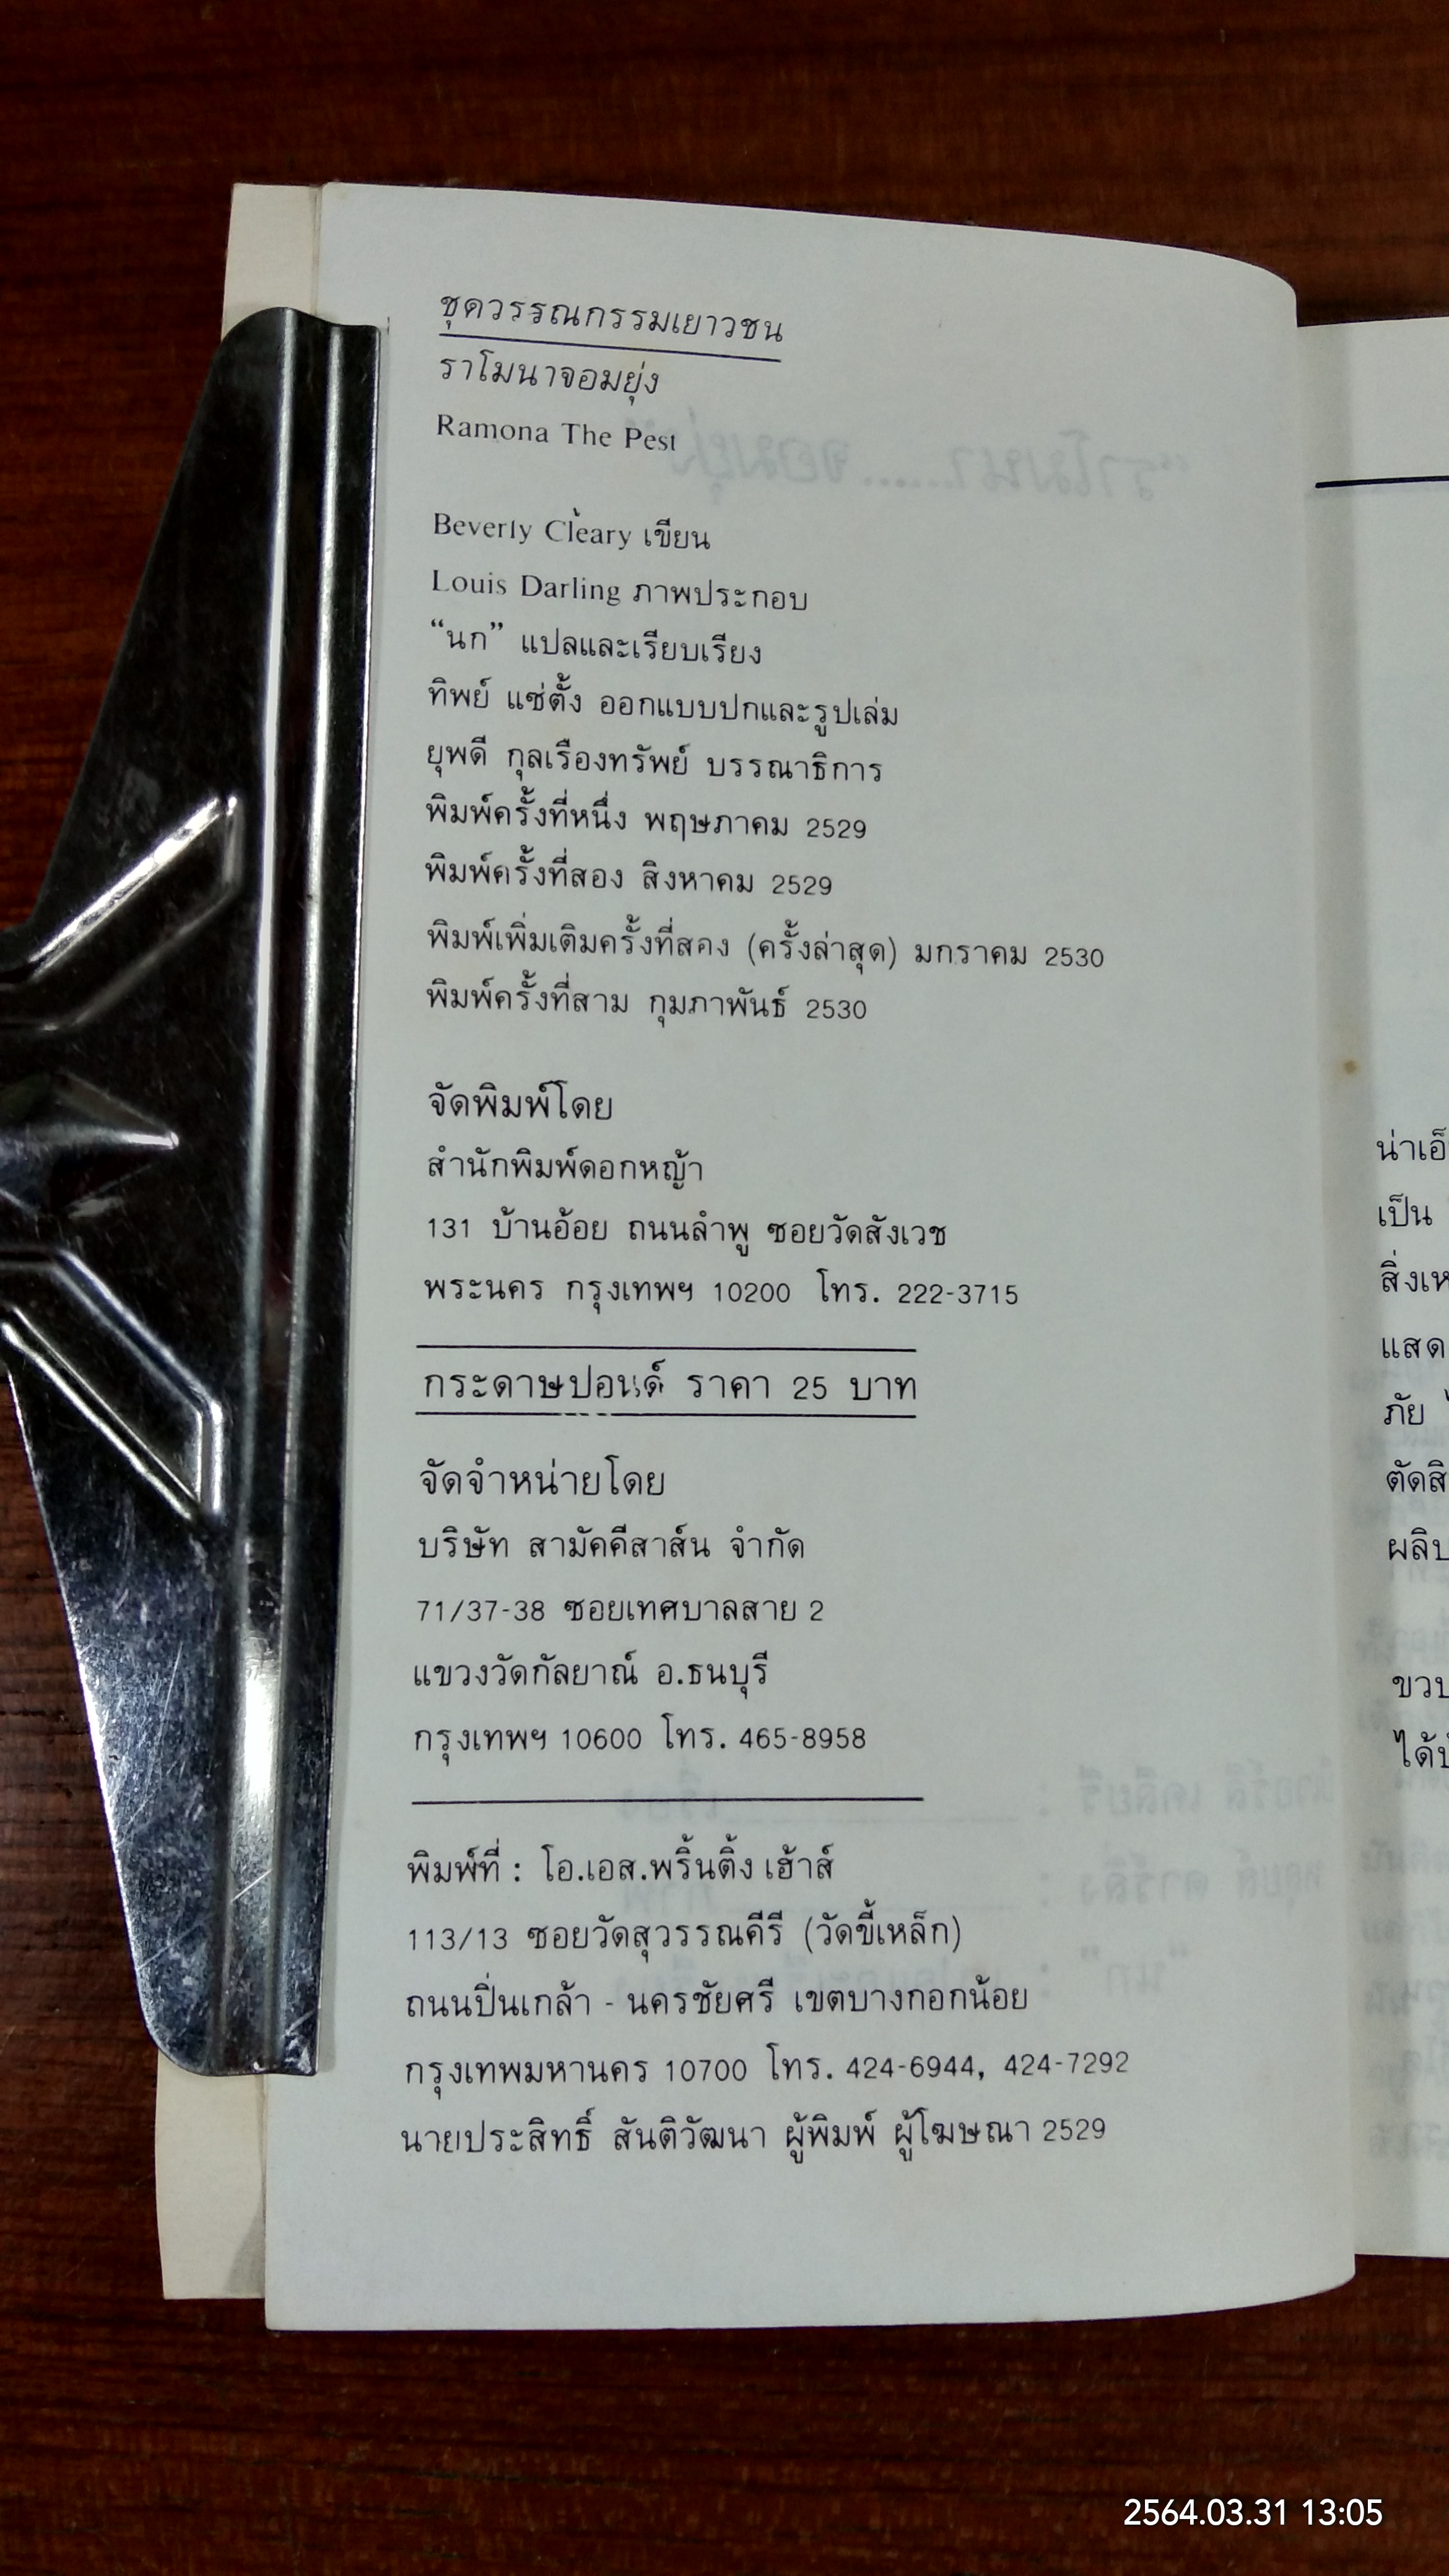 ชุดวรรณกรรมเยาวชน
ราโมนาจอมยุ่ง
Ramona The Pest
Beverly Cleary เขียน
Louis Darling ภาพประกอบ
“นก” แปลและเรียบเรียง
ทิพย์ แซ่ตั้ง ออกแบบปกและรูปเล่ม
ยุพดี กุลเรืองทรัพย์ บรรณาธิการ
พิมพ์ครั้งที่หนึ่ง พฤษภาคม 2529
พิมพ์ครั้งที่สอง สิงหาคม 2529
พิมพ์เพิ่มเติมครั้งที่สอง (ครั้งล่าสุด) มกราคม 2530
พิมพ์ครั้งที่สาม กุมภาพันธ์ 2530
จัดพิมพ์โดย
สำนักพิมพ์ดอกหญ้า
131 บ้านอ้อย ถนนลำพู ซอยวัดสังเวช
พระนคร กรุงเทพฯ 10200 โทร. 222-3715
กระดาษปอนด์ ราคา 25 บาท
จัดจำหน่ายโดย
บริษัท สามัคคีสาส์น จำกัด
71/37-38 ซอยเทศบาลสาย 2
แขวงวัดกัลยาณ์ อ.ธนบุรี
กรุงเทพฯ 10600 โทร. 465-8958
พิมพ์ที่ : โอ.เอส.พริ้นติ้ง เฮ้าส์
113/13 ซอยวัดสุวรรณคีรี (วัดขี้เหล็ก)
ถนนปิ่นเกล้า - นครชัยศรี เขตบางกอกน้อย
กรุงเทพมหานคร 10700 โทร. 424-6944, 424-7292
นายประสิทธิ์ สันติวัฒนา ผู้พิมพ์ ผู้โฆษณา 2529
เป็น
ภัย
2564.03.31 13:05